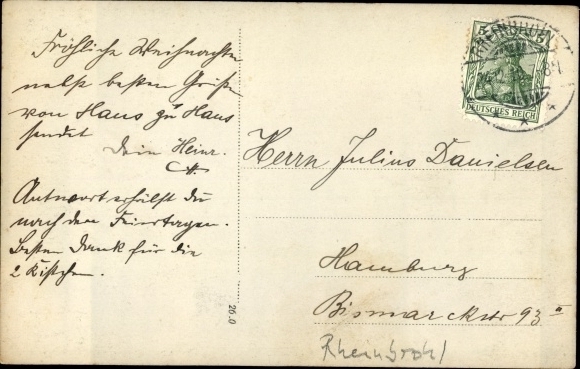 Fröhliche Weihnachten
nebst besten Grüßen
von Haus zu Haus
sendet
Dein Heinr.
Antwort erhälst du
nach den Feiertagen.
Besten Dank für die
2 Kistchen.
Herrn Julius Danielsen
Hamburg
Bismarckstr 93 II
Rheinbrohl
26.0
5 5
DEUTSCHES REICH